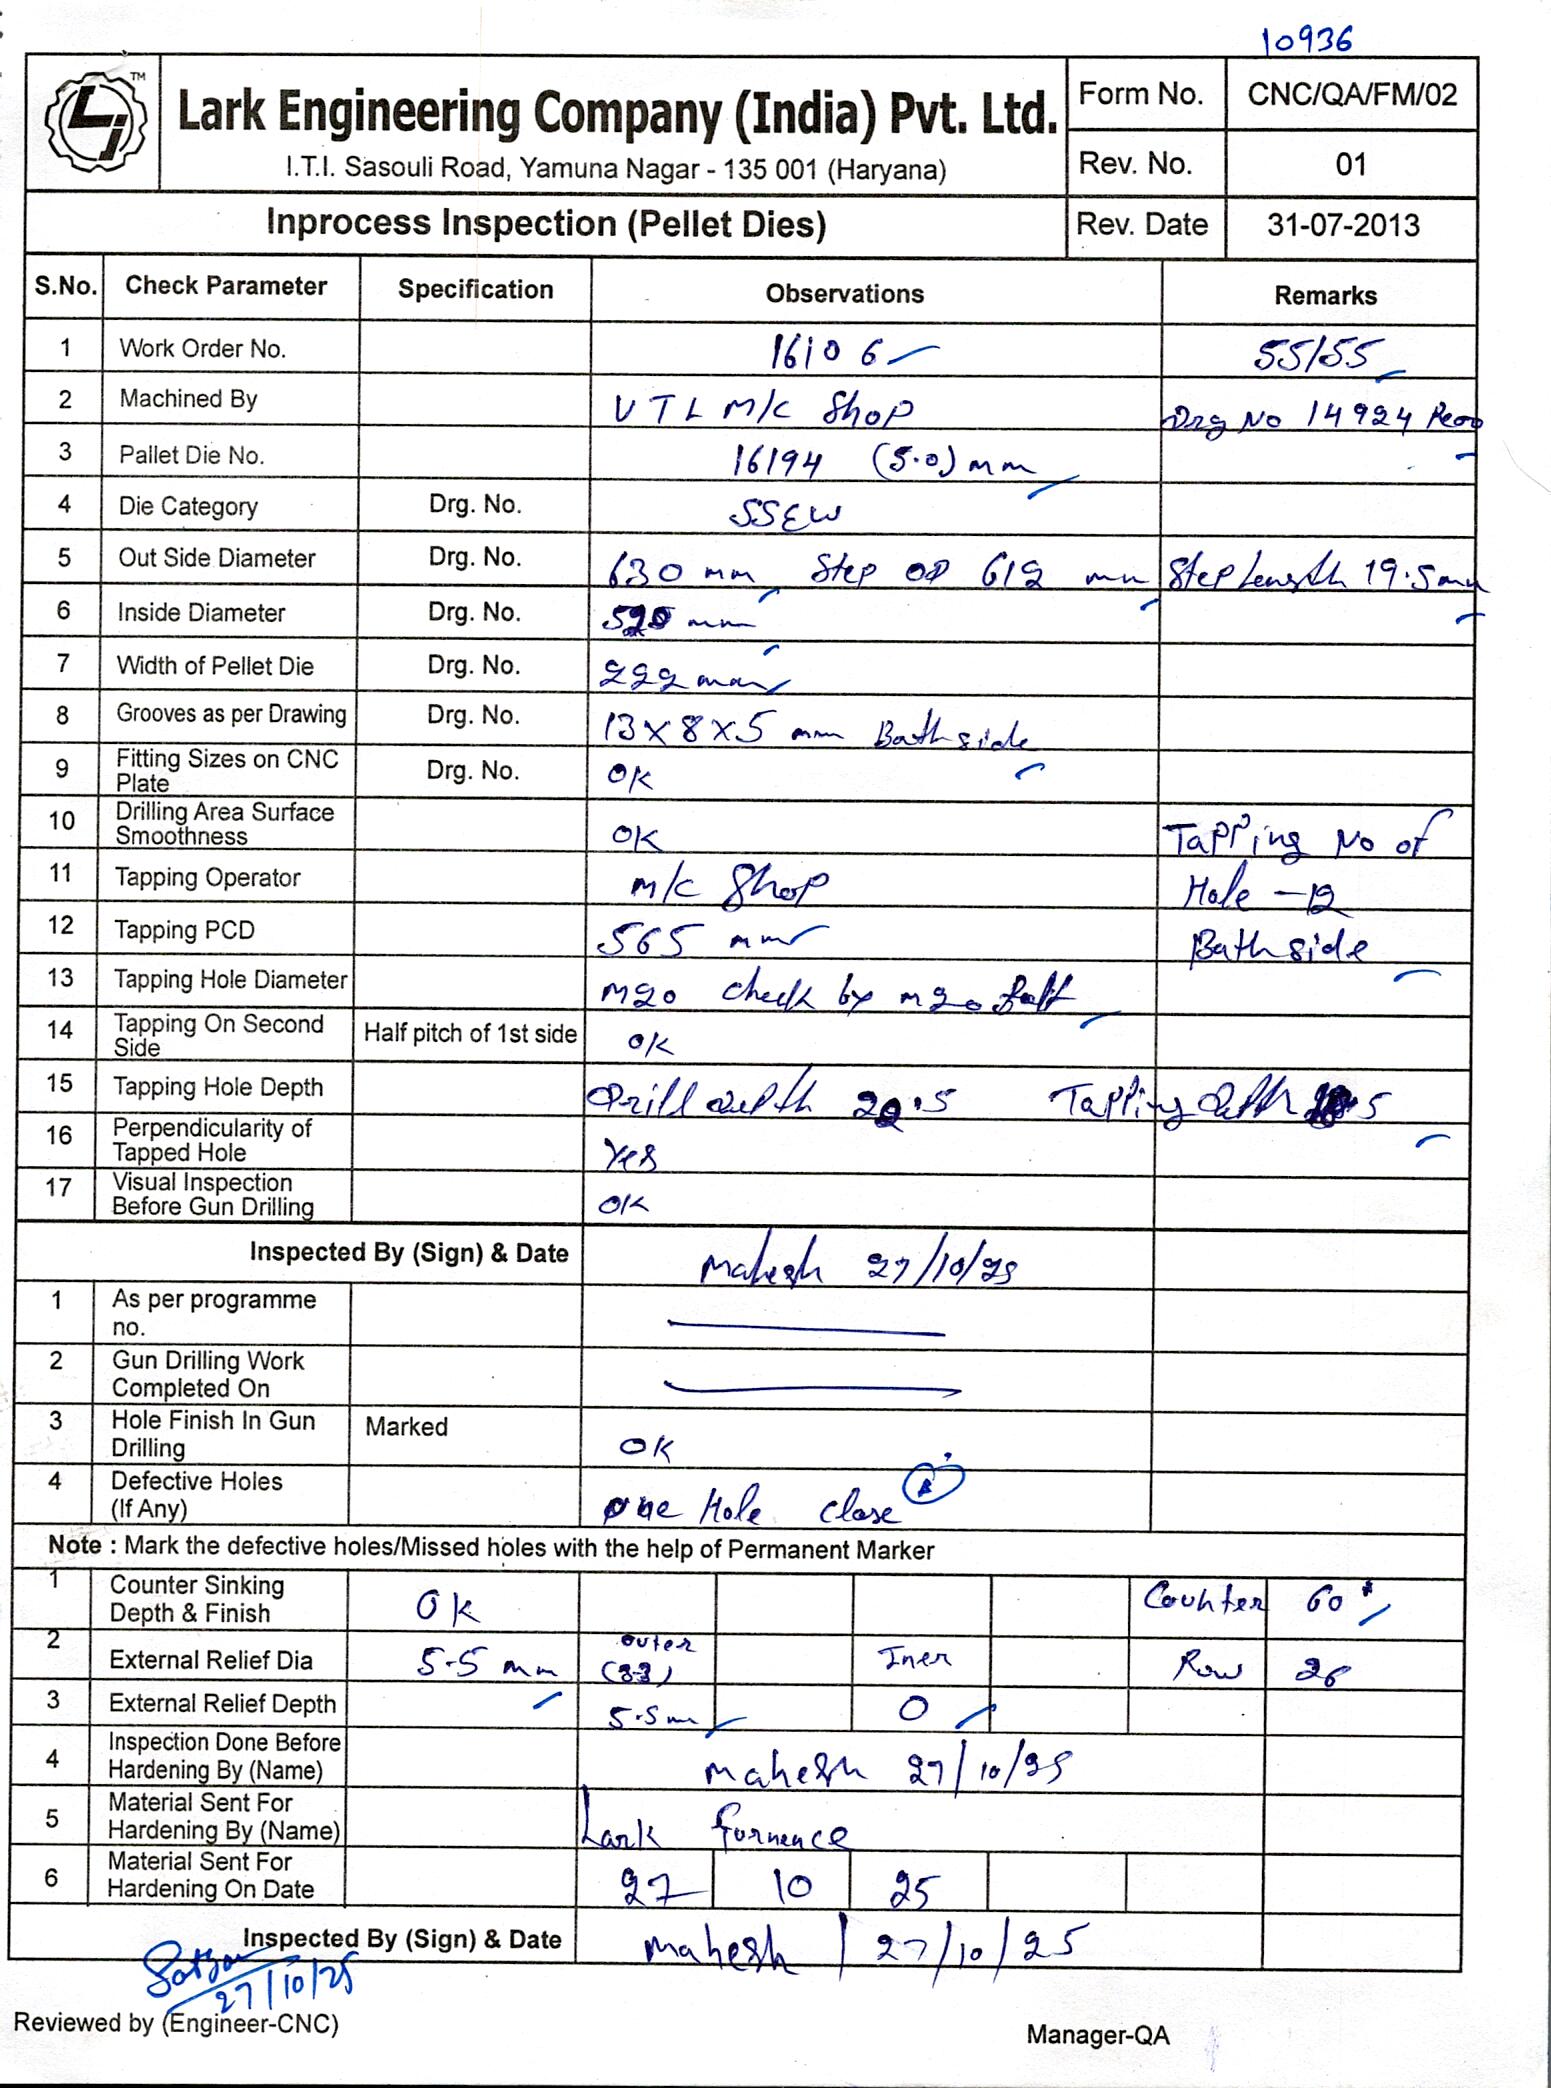 10936
TM
Lark Engineering Company (India) Pvt. Ltd.
I.T.I. Sasouli Road, Yamuna Nagar - 135 001 (Haryana)
Form No. CNC/QA/FM/02
Rev. No. 01
Inprocess Inspection (Pellet Dies) Rev. Date 31-07-2013
S.No. Check Parameter Specification Observations Remarks
1 Work Order No. 16106 55/55
2 Machined By VTL M/C Shop Drg No 14924
3 Pallet Die No. 16194 (5.0) mm
4 Die Category Drg. No. SSEW
5 Out Side Diameter Drg. No. 630 mm Step OD 612 mm Step Length 19.5 mm
6 Inside Diameter Drg. No. 520 mm
7 Width of Pellet Die Drg. No. 222 mm
8 Grooves as per Drawing Drg. No. 13x8x5 mm Bath side
9 Fitting Sizes on CNC Plate Drg. No. OK
10 Drilling Area Surface Smoothness OK Tapping No of
11 Tapping Operator M/C Shop Hole - 12
12 Tapping PCD 565 mm Bath side
13 Tapping Hole Diameter M20 check by M20
14 Tapping On Second Side Half pitch of 1st side OK
15 Tapping Hole Depth Drill depth Tapping
16 Perpendicularity of Tapped Hole Yes
17 Visual Inspection Before Gun Drilling OK
Inspected By (Sign) & Date Mahesh 27/10/25
1 As per programme no.
2 Gun Drilling Work Completed On
3 Hole Finish In Gun Drilling Marked OK
4 Defective Holes (If Any) one Hole close
Note : Mark the defective holes/Missed holes with the help of Permanent Marker
1 Counter Sinking Depth & Finish OK Counter 60°
2 External Relief Dia 5.5 mm outer (33) Iner Row 26
3 External Relief Depth 5.5 mm 0
4 Inspection Done Before Hardening By (Name) Mahesh 27/10/25
5 Material Sent For Hardening By (Name) Lark furnence
6 Material Sent For Hardening On Date 27 10 25
Inspected By (Sign) & Date Mahesh 27/10/25
27/10/25
Reviewed by (Engineer-CNC)
Manager-QA